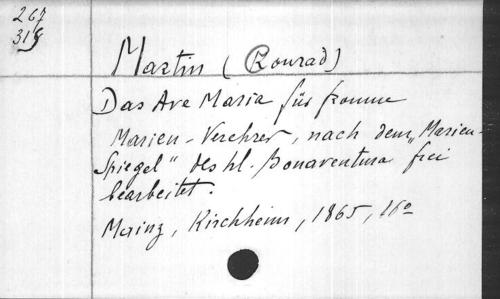 267
318
Martin (Konrad)
Das Ave Maria für fromme
Marien-Verehrer, nach dem „Marien-
Spiegel“ des hl. Bonaventura frei
bearbeitet.
Mainz, Kirchheim, 1865, 16°